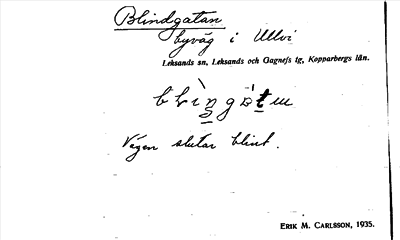 Blindgatan
byväg i Ullvi
Leksands sn, Leksands och Gagnefs tg, Kopparbergs län.
Vägen slutar blint.
ERIK M. CARLSSON, 1935.